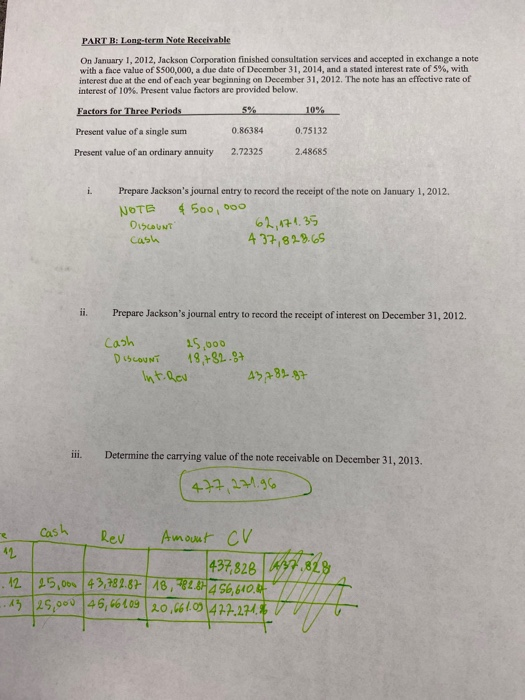 PART B: Long-term Note Receivable
On January 1, 2012, Jackson Corporation finished consultation services and accepted in exchange a note
with a face value of $500,000, a due date of December 31, 2014, and a stated interest rate of 5%, with
interest due at the end of each year beginning on December 31, 2012. The note has an effective rate of
interest of 10%. Present value factors are provided below.
Factors for Three Periods 5% 10%
Present value of a single sum 0.86384 0.75132
Present value of an ordinary annuity 2.72325 2.48685
i. Prepare Jackson's journal entry to record the receipt of the note on January 1, 2012.
NOTE $ 500,000
DISCOUNT 62,171.35
Cash 437,828.65
ii. Prepare Jackson's journal entry to record the receipt of interest on December 31, 2012.
Cash 25,000
DISCOUNT 18,782.87
Int. Rev 43,782.87
iii. Determine the carrying value of the note receivable on December 31, 2013.
477,271.96
Cash Rev Amount CV
12
437,828 437,828
.12 25,000 43,782.87 18,782.87 456,610.
.13 25,000 45,661.09 20,661.09 477.271.